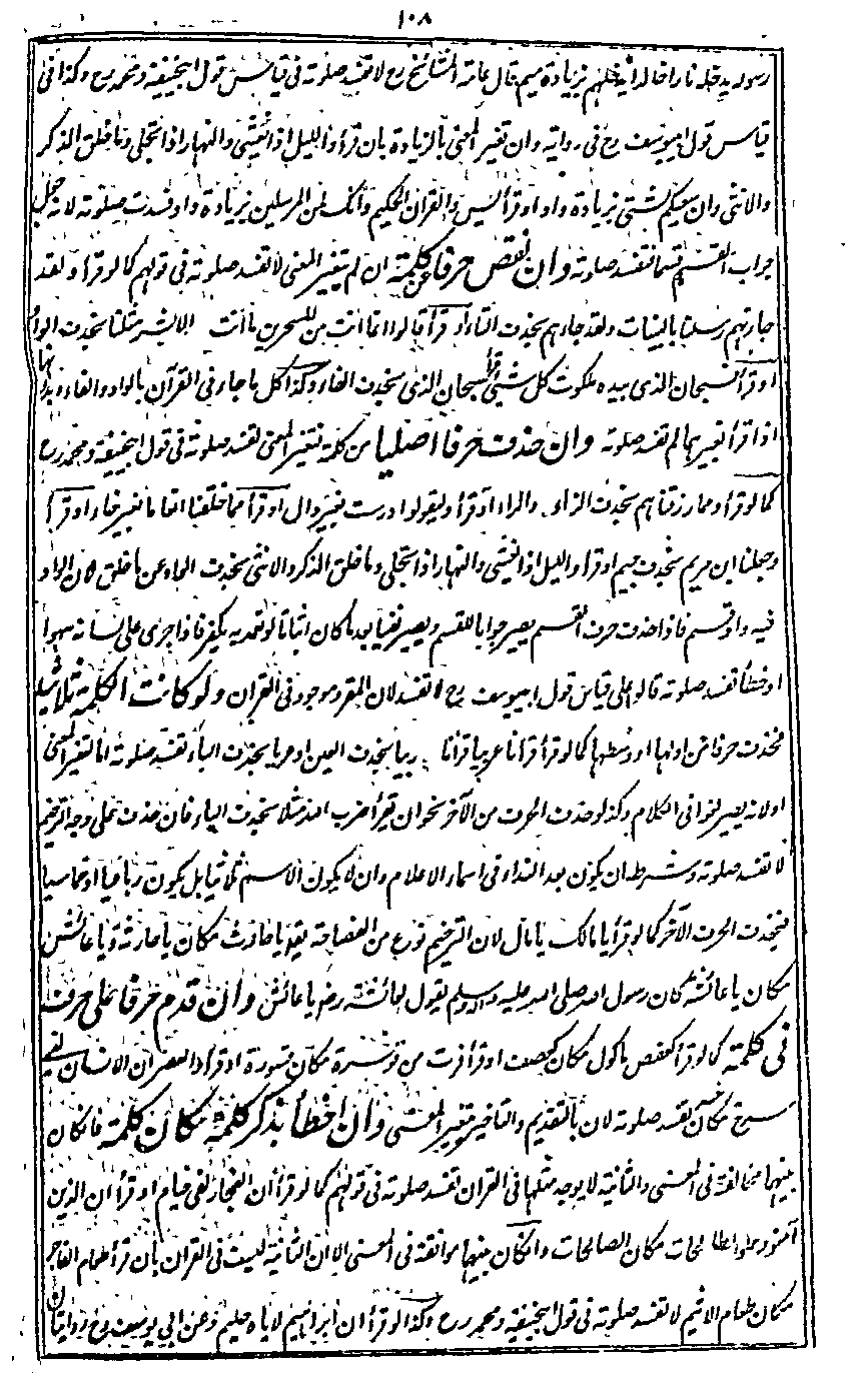 ١٠٨
رسوله يدخله نارا خالدا يدخلهم بزيادة ميم قال عامة المشائخ رح لا تفسد صلوته فى قياس قول ابيحنيفة ومحمد رح وكذا فى
قياس قول ابيوسف رح فى رواية وان تغير المعنى بالزيادة بان قرأ والليل اذا يغشى والنهار اذا تجلى وما خلق الذكر
والانثى وان سعيكم لشتى بزيادة واو او قرأ يس والقران الحكيم وانك لمن المرسلين بزيادة واو فسدت صلوته لانه جعل
جواب القسم قسما فتفسد صلوته وان نقص حرفا من كلمة ان لم يتغير المعنى لا تفسد صلوته فى قولهم كما لو قرأ ولقد
جاءتهم رسلنا بالبينات ولقد جاءهم بحذف التاء او قرأ قالوا انما انت من المسحرين ما انت الا بشر مثلنا بحذف الواو
او قرأ فسبحان الذى بيده ملكوت كل شئ قرأ سبحان الذى بحذف الفاء وكذا كل ما جاء فى القرآن بالواو والفاء وبدونها
اذا قرأ بغيرهما لم تفسد صلوته وان حذف حرفا اصليا من كلمة فتغير المعنى تفسد صلوته فى قول ابيحنيفة ومحمد رح
كما لو قرأ ومما رزقناهم بحذف الزاء والراء او قرأ وليقولوا درست بغير دال او قرأ مما خلقنا انعاما بغير خاء او قرأ
وجعلنا ابن مريم بحذف جيم او قرأ والليل اذا يغشى والنهار اذا تجلى وما خلق الذكر والانثى بحذف الواو عن ما خلق لان الواو
فيه واو قسم فاذا حذف حرف القسم يصير جوابا للقسم ويصير نفيا بعد ما كان اثباتا لو تعمد به يكفر فاذا جرى على لسانه سهوا
او خطأ تفسد صلوته قالوا على قياس قول ابيوسف رح لا تفسد لان المقرو موجود فى القران ولو كانت الكلمة ثلاثية
فحذف حرفا من اولها او وسطها كما لو قرأ قرأنا عربيا قرأنا ربيا بحذف العين او عربا بحذف الياء تفسد صلوته اما لتغير المعنى
او لانه يصير لغوا فى الكلام وكذا لو حذف الحرف من الآخر نحو ان يقرأ ضرب الله مثلا بحذف الباء فان حذف على وجه الترخيم
لا تفسد صلوته وشرطه ان يكون بعد النداء فى اسماء الاعلام وان لا يكون الاسم ثلاثيا بل يكون رباعيا او خماسيا
فيحذف الحرف الآخر كما لو قرأ يا مالك يا مال لان الترخيم نوع من الفصاحة يقال يا حارث مكان يا حارثة ويا عائش
مكان يا عائشة كان رسول الله صلى الله عليه وآله وسلم يقول لعائشة رض يا عائش وان قدم حرفا على حرف
فى كلمة كما لو قرأ كعفص ماكول مكان كعصف او قرأ فرت من قوسرة مكان قسورة او قرأ والعصر ان الانسان لفى
سرخ مكان خسر تفسد صلوته لان بالتقديم والتاخير يتغير المعنى وان اخطأ بذكر كلمة مكان كلمة فان كان
بينهما مخالفة فى المعنى والثانية لا يوجد مثلها فى القران تفسد صلوته فى قولهم كما لو قرأ ان الفجار لفى قيام او قرأ ان الذين
آمنوا وعملوا الطالحات مكان الصالحات وان كان بينهما موافقة فى المعنى الا ان الثانية ليست فى القران بان قرأ طعام الفاجر
مكان طعام الاثيم لا تفسد صلوته فى قول ابيحنيفة ومحمد رح وكذا لو قرأ ان ابراهيم لاياه حليم وعن ابي يوسف رح روايتان